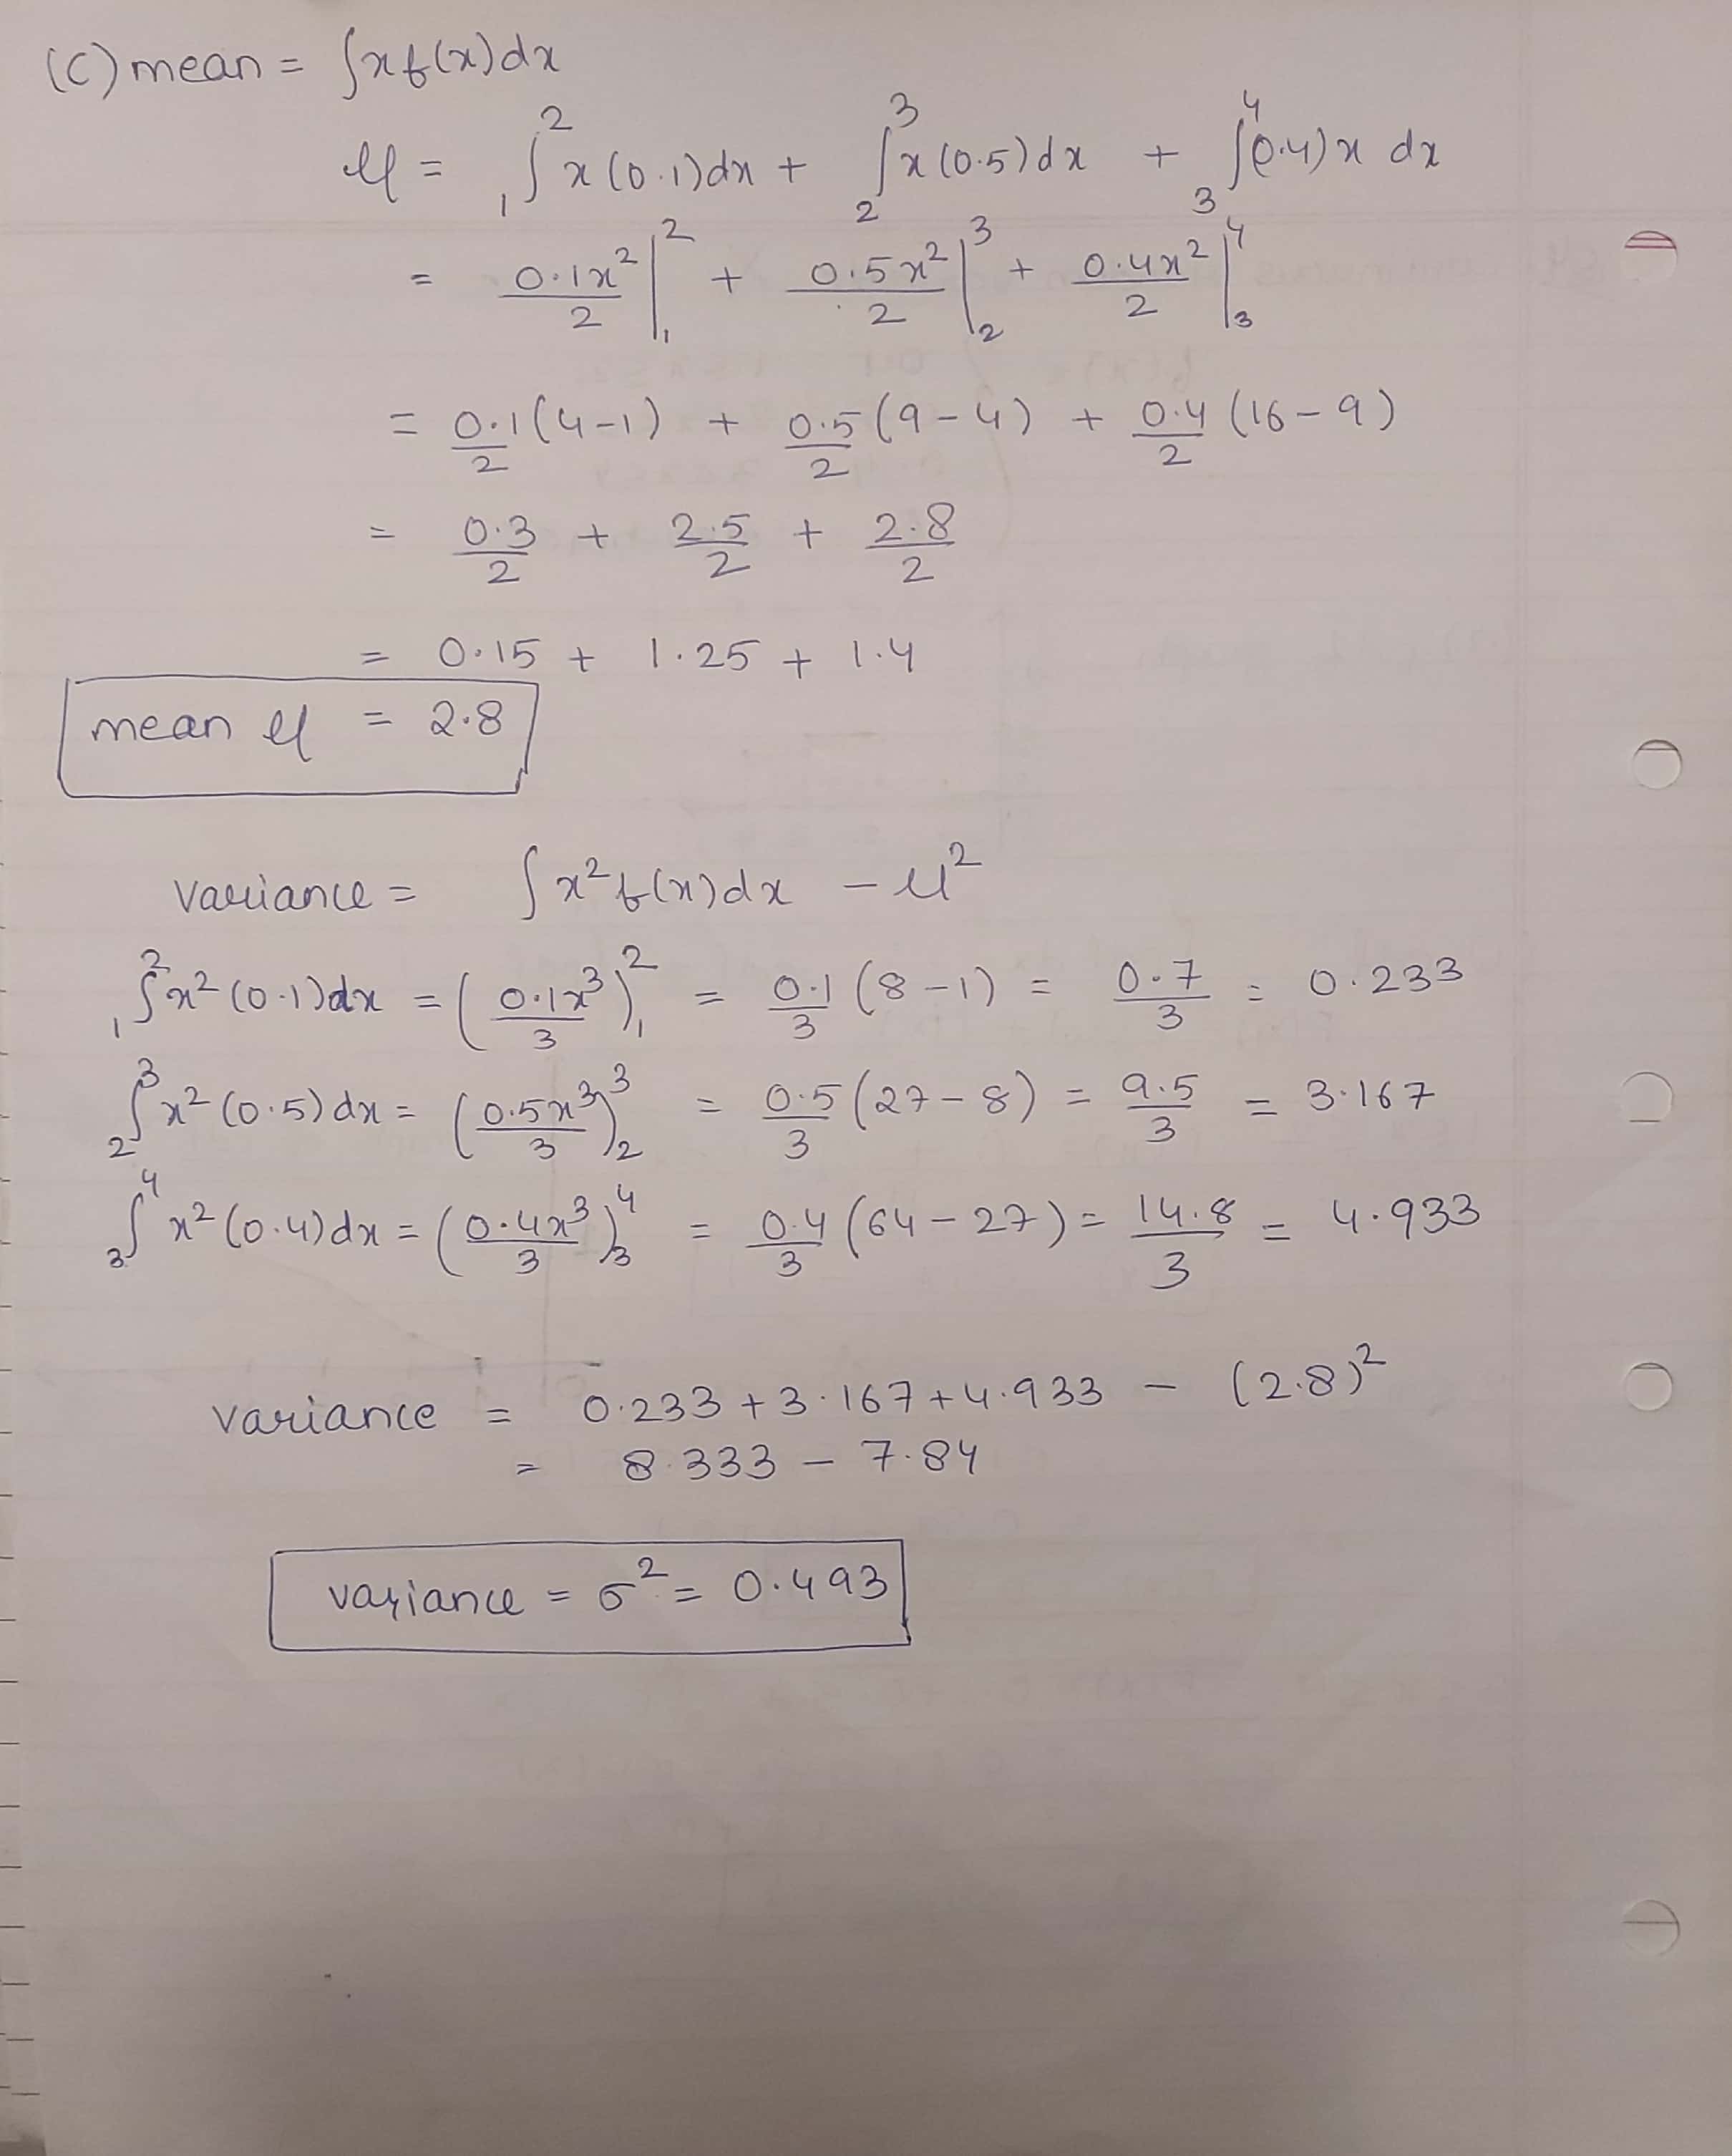 (C) mean = ∫xf(x)dx
μ = ₁∫² x(0.1)dx + ₂∫³ x(0.5)dx + ₃∫⁴ (0.4)x dx
= 0.1x²/2 |₁² + 0.5x²/2 |₂³ + 0.4x²/2 |₃⁴
= 0.1/2 (4-1) + 0.5/2 (9-4) + 0.4/2 (16-9)
= 0.3/2 + 2.5/2 + 2.8/2
= 0.15 + 1.25 + 1.4
mean μ = 2.8
variance = ∫x²f(x)dx - μ²
₁∫² x²(0.1)dx = (0.1x³/3)₁² = 0.1/3 (8-1) = 0.7/3 = 0.233
₂∫³ x²(0.5)dx = (0.5x³/3)₂³ = 0.5/3 (27-8) = 9.5/3 = 3.167
₃∫⁴ x²(0.4)dx = (0.4x³/3)₃⁴ = 0.4/3 (64-27) = 14.8/3 = 4.933
variance = 0.233 + 3.167 + 4.933 - (2.8)²
= 8.333 - 7.84
variance = σ² = 0.493